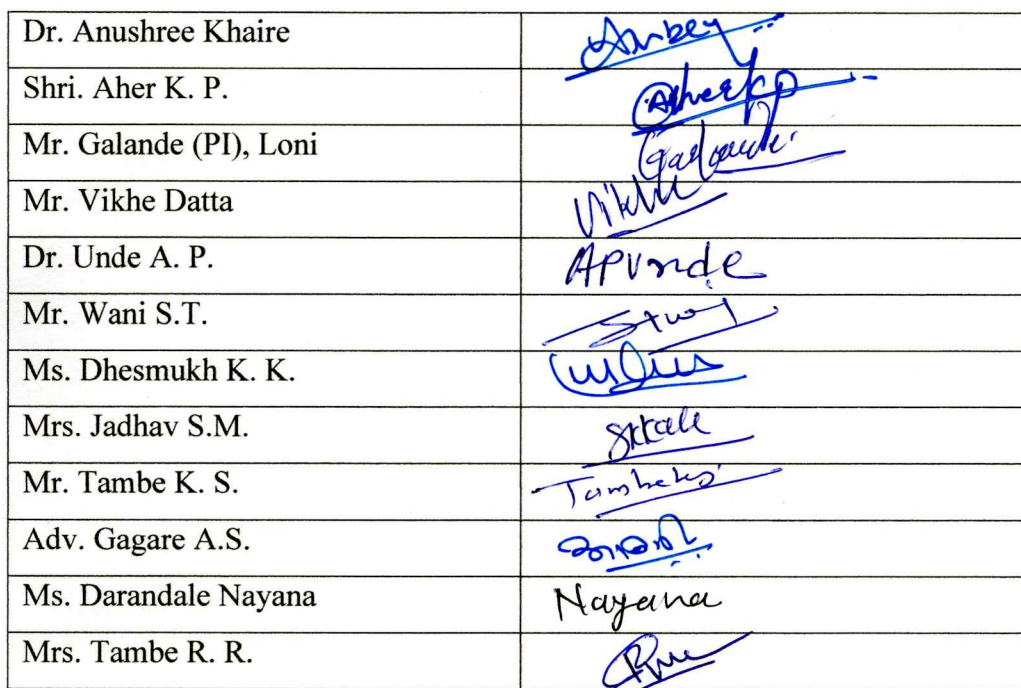 Dr. Anushree Khaire
Shri. Aher K. P. Aherkp
Mr. Galande (PI), Loni Galande
Mr. Vikhe Datta Vikhe
Dr. Unde A. P. APUnde
Mr. Wani S.T.
Ms. Dhesmukh K. K.
Mrs. Jadhav S.M.
Mr. Tambe K. S. Tambeks
Adv. Gagare A.S.
Ms. Darandale Nayana Nayana
Mrs. Tambe R. R.